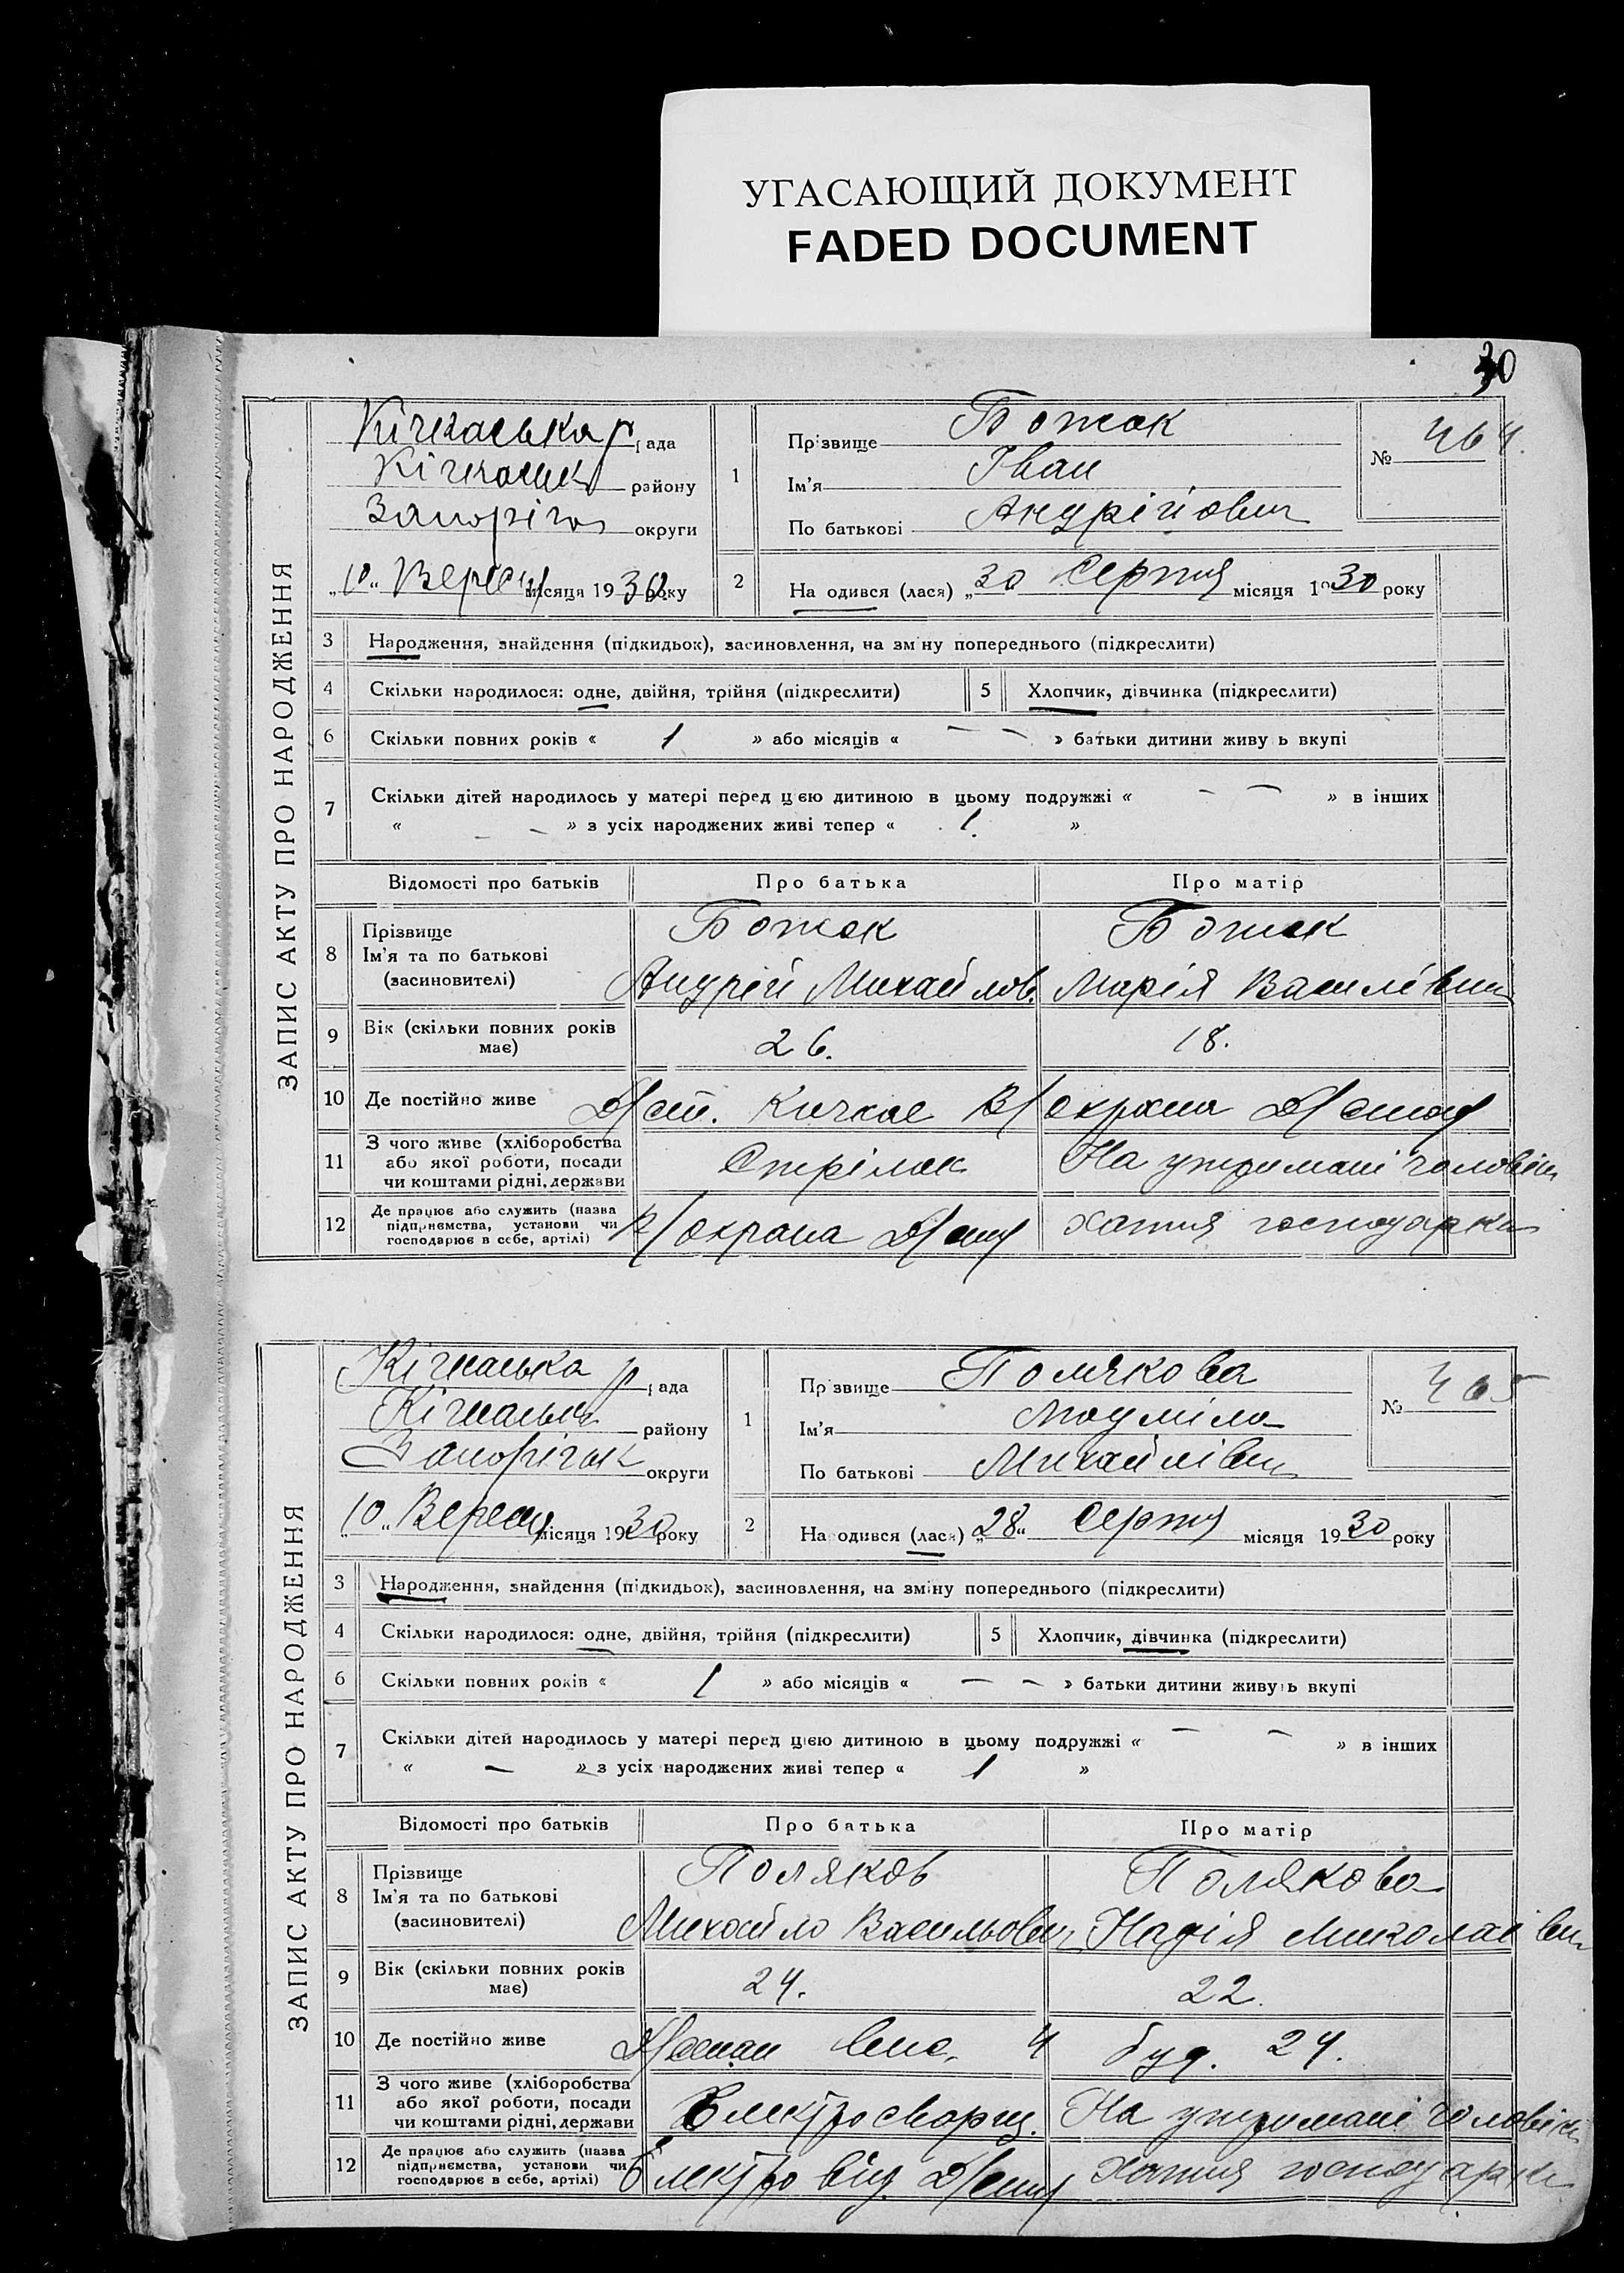 УГАСАЮЩИЙ ДОКУМЕНТ
FADED DOCUMENT
30
ЗАПИС АКТУ ПРО НАРОДЖЕННЯ
Кічкаська рада
району
Запоріз округи
„10" Вересня місяця 1930 року
1
Прізвище Божок
Ім'я Іван
По батькові Андрійович
№ 464.
2 Народився (лася) „30 Серпня місяця 1930 року
3 Народження, знайдення (підкидьок), засиновлення, на зміну попереднього (підкреслити)
4 Скільки народилося: одне, двійня, трійня (підкреслити) 5 Хлопчик, дівчинка (підкреслити)
6 Скільки повних років « 1 » або місяців « — — » батьки дитини живуть вкупі
7 Скільки дітей народилось у матері перед цією дитиною в цьому подружжі « — — » в інших
« — — » з усіх народжених живі тепер « 1. »
Відомості про батьків Про батька Про матір
8 Прізвище Божок Божок
Ім'я та по батькові
(засиновителі) Андрій Михайлов. Марія Василівна
9 Вік (скільки повних років має) 26. 18.
10 Де постійно живе Д/ст. Кичкас В/охрана
11 З чого живе (хліборобства або якої роботи, посади чи коштами рідні, держави Стрілок На утримані чоловіка
12 Де працює або служить (назва підприємства, установи чи господарює в себе, артілі) В/охрана хатня господарка
ЗАПИС АКТУ ПРО НАРОДЖЕННЯ
Кічкаська рада
району
Запорізьк округи
„10" Вересня місяця 1930 року
1
Прізвище Полякова
Ім'я Людміла
По батькові Михайлівна
№ 465
2 Народився (лася) „28" Серпня місяця 1930 року
3 Народження, знайдення (підкидьок), засиновлення, на зміну попереднього (підкреслити)
4 Скільки народилося: одне, двійня, трійня (підкреслити) 5 Хлопчик, дівчинка (підкреслити)
6 Скільки повних років « 1 » або місяців « — — » батьки дитини живуть вкупі
7 Скільки дітей народилось у матері перед цією дитиною в цьому подружжі « — — » в інших
« — » з усіх народжених живі тепер « 1 »
Відомості про батьків Про батька Про матір
8 Прізвище Поляков Полякова
Ім'я та по батькові
(засиновителі) Михайло Васильович Надія Миколаівна
9 Вік (скільки повних років має) 24. 22.
10 Де постійно живе 4 буд. 24.
11 З чого живе (хліборобства або якої роботи, посади чи коштами рідні, держави На утримані чоловіка
12 Де працює або служить (назва підприємства, установи чи господарює в себе, артілі) Електро від. хатня господарка